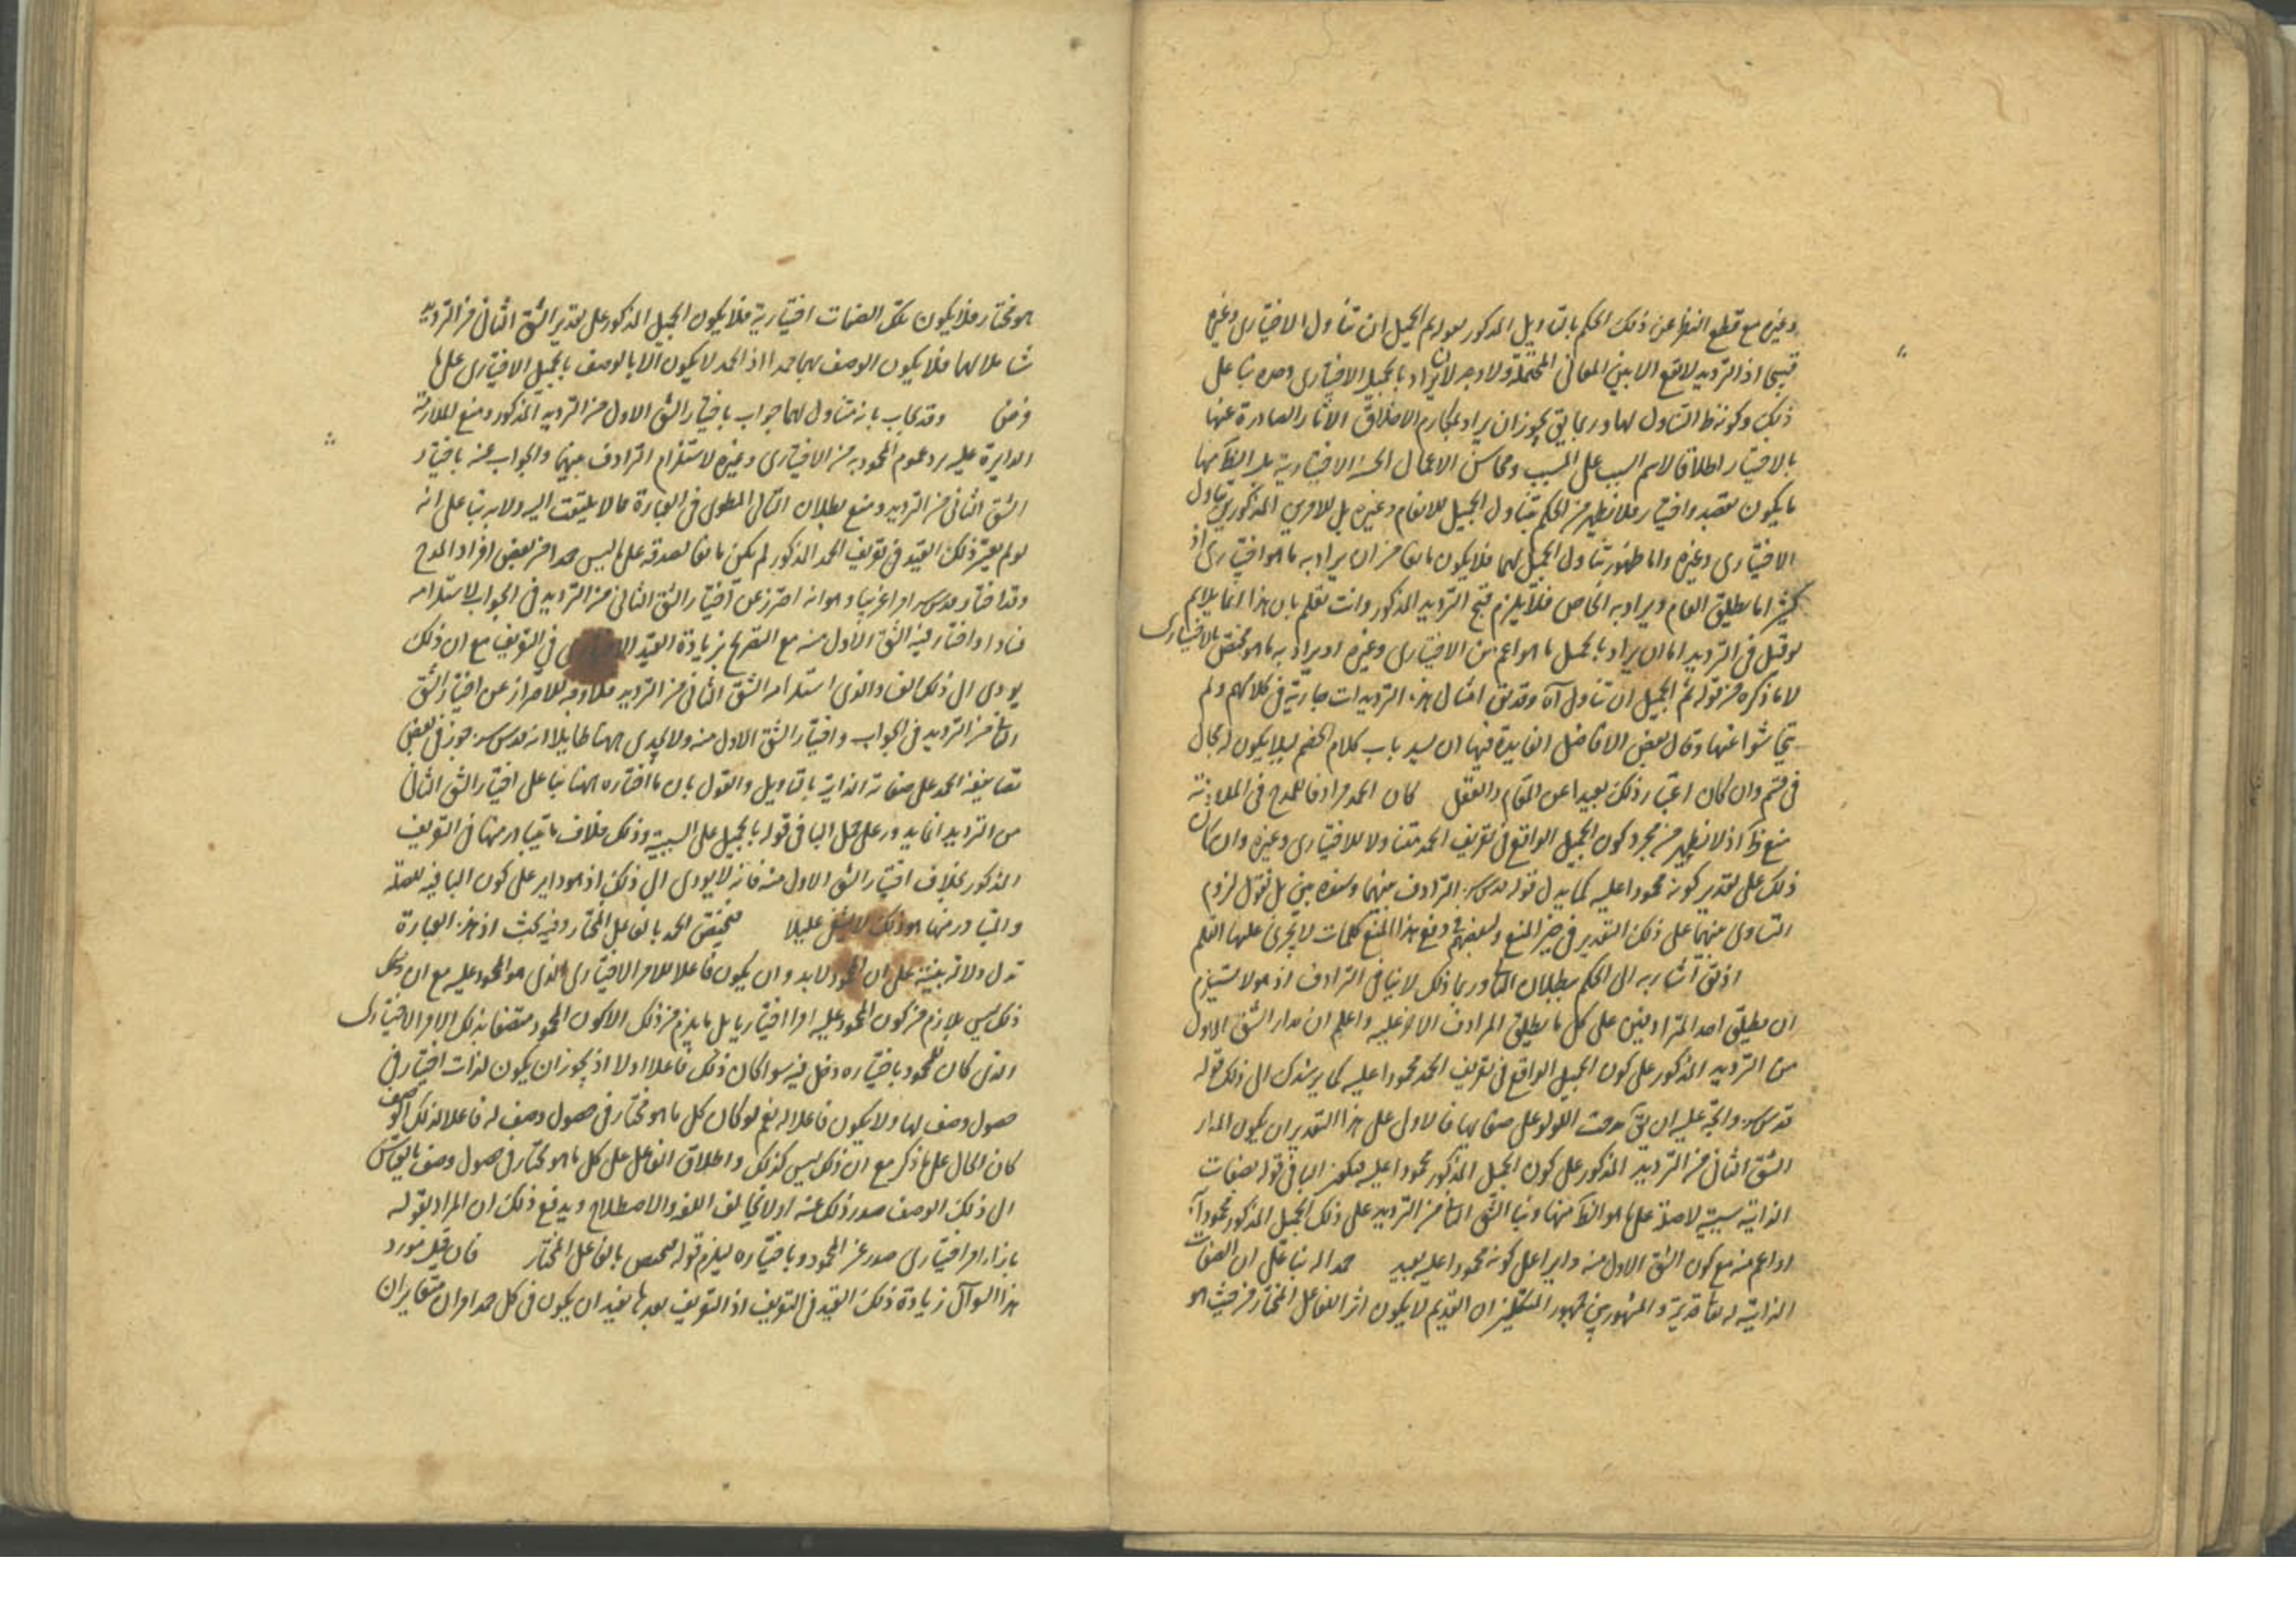 وغيره مع قطع النظر عن ذلك الحكم بالتاويل المذكور بعوله ثم الجميل ان تناول الاختياري وغيره
قبيحا اذ الترديد لا يقع الا بين المعاني المحتملة ولا وجه لان يراد بالجميل الاختياري وحده بنا على
ذلك وكونه ظ التناول لها وربما يق يجوز ان يراد بمكارم الاخلاق الاثار الصادرة عنها
بالاختيار اطلاقا لاسم السبب على المسبب ومحاسن الاعمال الحسنة الاختيارية بل الظ منها
ما يكون بقصد واختيار فلا يظهر من الحكم بتناول الجميل للانعام وغيره بل للامرين المذكورين تناول
الاختياري وغيره واما ظهور تناول الجميل لهما فلا يكون مانعا من ان يراد به ما هو اختياري اذ
كثيرا ما يطلق العام ويراد به الخاص فلا يلزم قبح الترديد المذكور وانت تعلم بان هذا انما يلايم
لو قيل في الترديد اما ان يراد بالجميل ما هو اعم من الاختياري وغيره او يراد به ما هو مختص بالاختياري
لا ما ذكره من قوله ثم الجميل ان تناول آه وقد يق امثال هذه الترديدات جارية في كلامهم ولم
يتحاشوا عنها وقال بعض الافاضل الفايدة فيها ان يسد باب كلام الخصم ليلا يكون له مجال
في قسم وان كان اعتبار ذلك بعيدا عن المقام والعقل كان الحمد مرادفا للمدح في الملازمة
منع ظ اذ لا يظهر من مجرد كون الجميل الواقع في تعريف الحمد متناولا للاختياري وغيره وان كان
ذلك على تقدير كونه محمودا عليه كما يدل قوله قدس سره الترادف بينهما وسنده بين بل نقول لزوم
التساوي بينهما على ذلك التقدير في حيز المنع ولبعضهم في دفع هذا المنع كلمات لا يجري عليها القلم
اذ يق اشار به الى الحكم ببطلان التا وربما ذلك لا ينافي الترادف اذ هو لا يستلزم
ان يطلق احد المترادفين على كل ما يطلق المرادف الاخر عليه واعلم ان مدار الشق الاول
من الترديد المذكور على كون الجميل الواقع في تعريف الحمد محمودا عليه كما يرشدك الى ذلك قوله
قدس سره واتجه عليه ان يق مدحت اللولو على صفائها فالاولى على هذا التقدير ان يكون المدار
الشق الثاني من الترديد المذكور على كون الجميل المذكور محمودا عليه فيكون البا في قوله بصفات
الذاتية سببية لا صلة على ما هو الظ منها وبنا الشق التا من الترديد على ذلك الجميل المذكور محمودا به
او اعم منه مع كون الشق الاول منه دايرا على كونه محمودا عليه بعيد حمدا له بنا على ان الصفات
الذاتية له تعا قديمة والمشهور بين جمهور المتكلمين ان القديم لا يكون اثر الفاعل المختار من حيث هو
هو مختار فلا يكون تلك الصفات اختيارية فلا يكون الجميل المذكور على تقدير الشق الثاني من الترديد
شاملا لهما فلا يكون الوصف بهما حمدا اذ الحمد لا يكون الا بالوصف بالجميل الاختياري على ما
فرض وقد يجاب بانه متناول لهما جواب باختيار الشق الاول من الترديد المذكور ومنع للملازمة
الدايرة عليه برد عموم المحمود به من الاختياري وغيره لاستلزام الترادف بينهما والجواب عنه باختيار
الشق الثاني من الترديد ومنع بطلان التالي المطوي في العبارة مما لا يلتفت اليه ولا به بنا على انه
لو لم يعتبر ذلك القيد في تعريف الحمد المذكور لم يكن مانعا لصدقه على ما ليس حمدا من بعض افراد المدح
وقد اختار قدس سره امرا غريبا وهو انه احترز عن اختيار الشق الثاني من الترديد في الجواب لاستلزامه
فسادا واختار فيه الشق الاول منه مع التصريح بزيادة القيد الاختياري في التعريف مع ان ذلك
يودي الى ذلك الفساد الذي استلزامه الشق الثاني من الترديد فلا وجه للاحتراز عن اختيار الشق
التا من الترديد في الجواب واختيار الشق الاول منه ولا يجدي ههنا طايلا انه قدس سره جوز في بعض
تصانيفه الحمد على صفاته الذاتية بالتاويل والقول بان ما اختاره ههنا بنا على اختيار الشق الثاني
من الترديد انما يدور على حمل البا في قوله بالجميل على السببية وذلك خلاف ما يتبادر منها في التعريف
المذكور بخلاف اختيار الشق الاول منه فانه لا يودي الى ذلك اذ هو داير على كون البا فيه للصلة
والمتبادر منها هو ذلك لا يشفي عليلا فيختص الحمد بالفاعل المختار وفيه بحث اذ هذه العبارة
تدل دلالة بينة على ان المحمود لابد وان يكون فاعلا للامر الاختياري الذي هو المحمود عليه مع ان وكل
ذلك ليس بلازم من كون المحمود عليه امرا اختياريا بل ما يلزم من ذلك الا كون المحمود متصفا بذلك الامر الاختياري
الذي كان للمحمود باختياره دخل فيه سوا كان ذلك فاعلا او لا اذ يجوز ان يكون لذات اختيار في
حصول وصف لها ولا يكون فاعلا له نعم لو كان كل ما هو مختار في حصول وصف له فاعلا لذلك الوصف
كان الحال على ما ذكر مع ان ذلك ليس كذلك واطلاق الفاعل على كل ما هو مختار في حصول وصف بالقياس
الى ذلك الوصف صدر ذلك عنه او لا يخالف اللغة والاصطلاح ويدفع ذلك ان المراد بقوله
بازاء امر اختياري صدر عن المحمود وباختياره ليلزم قوله فيختص بالفاعل المختار فان قيل مورد
هذا السوال زيادة ذلك القيد في التعريف اذ التعريف بعدها يفيد ان يكون في كل حمد امران متغايران